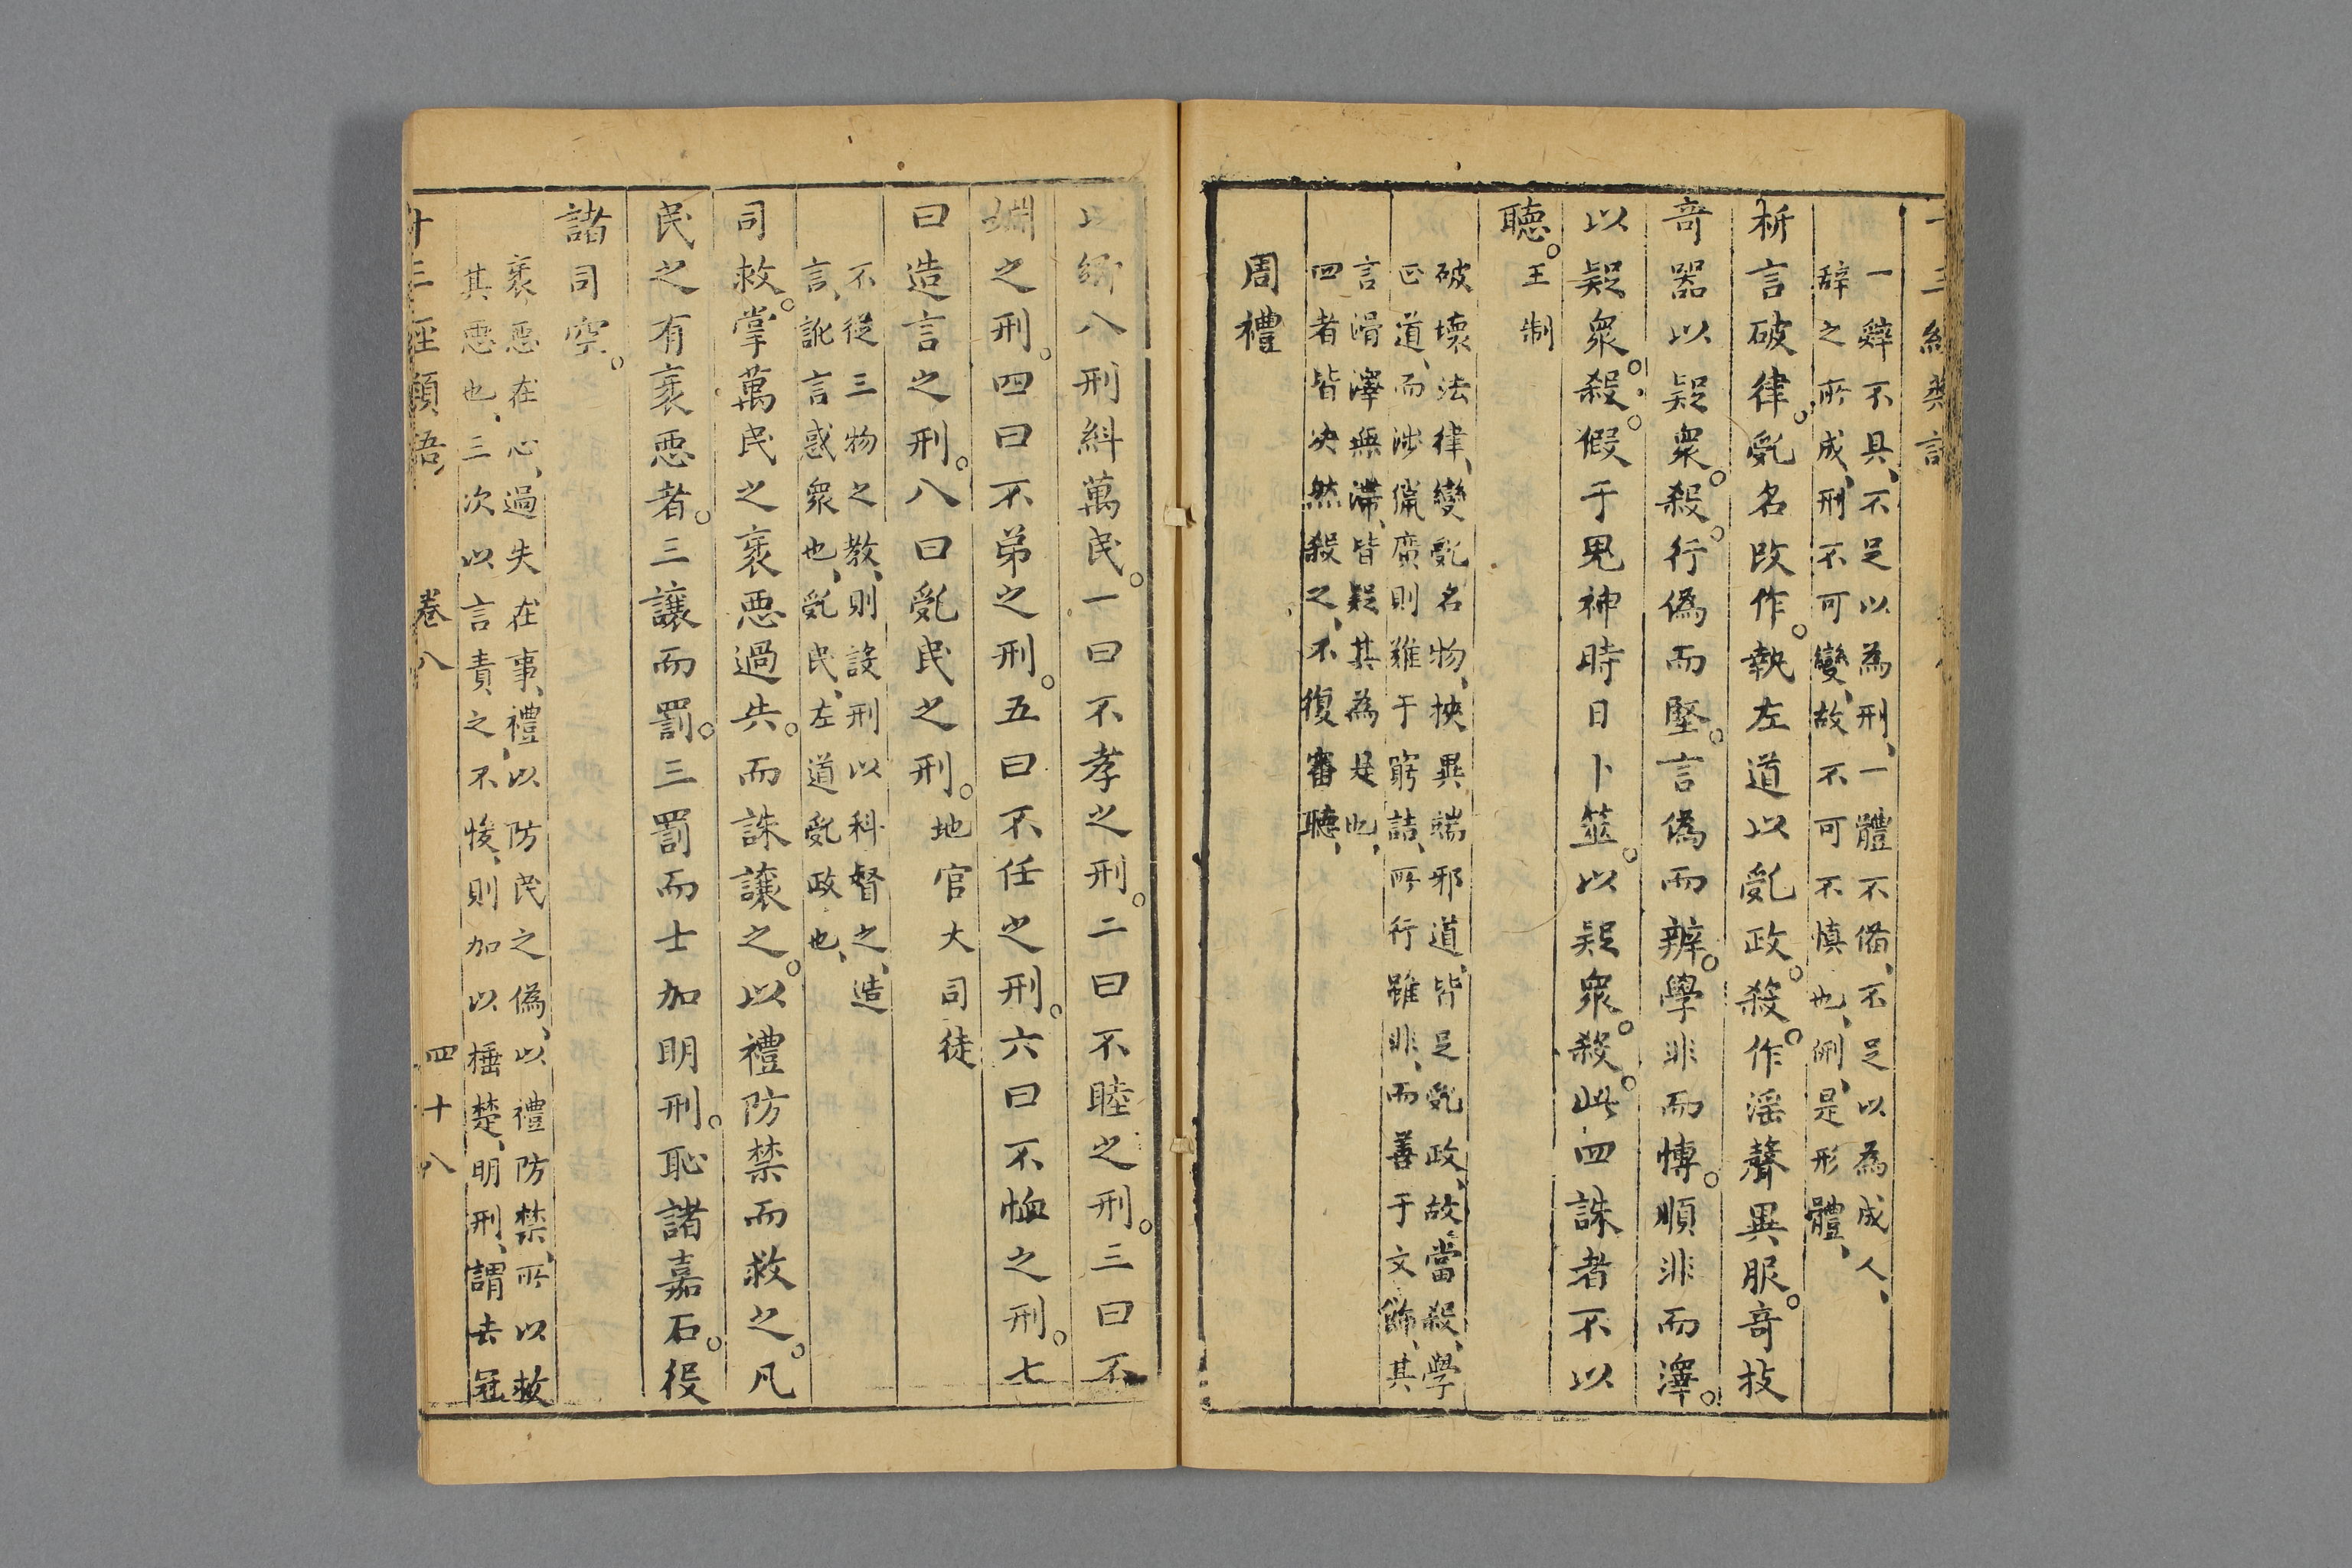 一辭不具、不足以為刑、一體不備、不足以為成人、
辭之所成、刑不可變、故不可不慎也、侀、是形體、
析言破律。亂名改作。執左道以亂政。殺。作滛聲異服。竒技
竒噐以疑衆。殺。行偽而堅。言偽而辨。學非而愽。順非而澤。
以疑衆。殺。假于鬼神時日卜筮。以疑衆。殺。此四誅者不以
聽。王制
破壞法律、變亂名物、挾異端邪道、皆足亂政、故當殺、學
正道、而涉獵廣則難于窮詰、所行雖非、而善于文飾、其
言滑澤無滯、皆疑其為是也、
四者皆决然殺之、不復審聽、
周禮
以鄉八刑糾萬民。一曰不孝之刑。二曰不睦之刑。三曰不
婣之刑。四曰不弟之刑。五曰不任之刑。六曰不恤之刑。七
曰造言之刑。八曰亂民之刑。地官大司徒
不從三物之教、則設刑以科督之、造
言、訛言惑衆也、亂民、左道亂政也、
司救。掌萬民之衺惡過失。而誅讓之。以禮防禁而救之。凡
民之有衺惡者。三讓而罰。三罰而士加明刑。恥諸嘉石。役
諸司空。
衺惡在心、過失在事、禮、以防民之偽、以禮防禁、所以救
其惡也、三次以言責之不悛、則加以棰楚、明刑、謂去冠
卷八 四十八